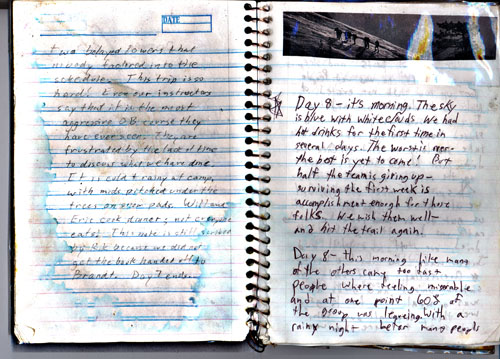 DATE
two belayed lowers that
already factored into the
schedule. This trip is so
hard! Even our instructors
say that it is the most
aggressive OB course they
have ever seen. They are
frustrated by the lack of time
to discuss what we have done
It is cold & rainy at camp,
with mids pitched under the
trees on over pads. Will and
Eric cook dinner; not everyone
eats! This note is still scribed
by B.K because we did not
get the book handed off to
Brandt. Day 7 ends.
Day 8 - it's morning. The sky
is blue with white clouds. We had
hot drinks for the first time in
several days. The worst is over
the best is yet to come! But
half the team is giving up -
surviving the first week is
accomplishment enough for those
folks. We wish them well -
and hit the trail again.
Day 8 - this morning like many
of the others came too fast
people where feeling miserable
and at one point 60% of
the group was leaveing. With a
rainy night behind many people